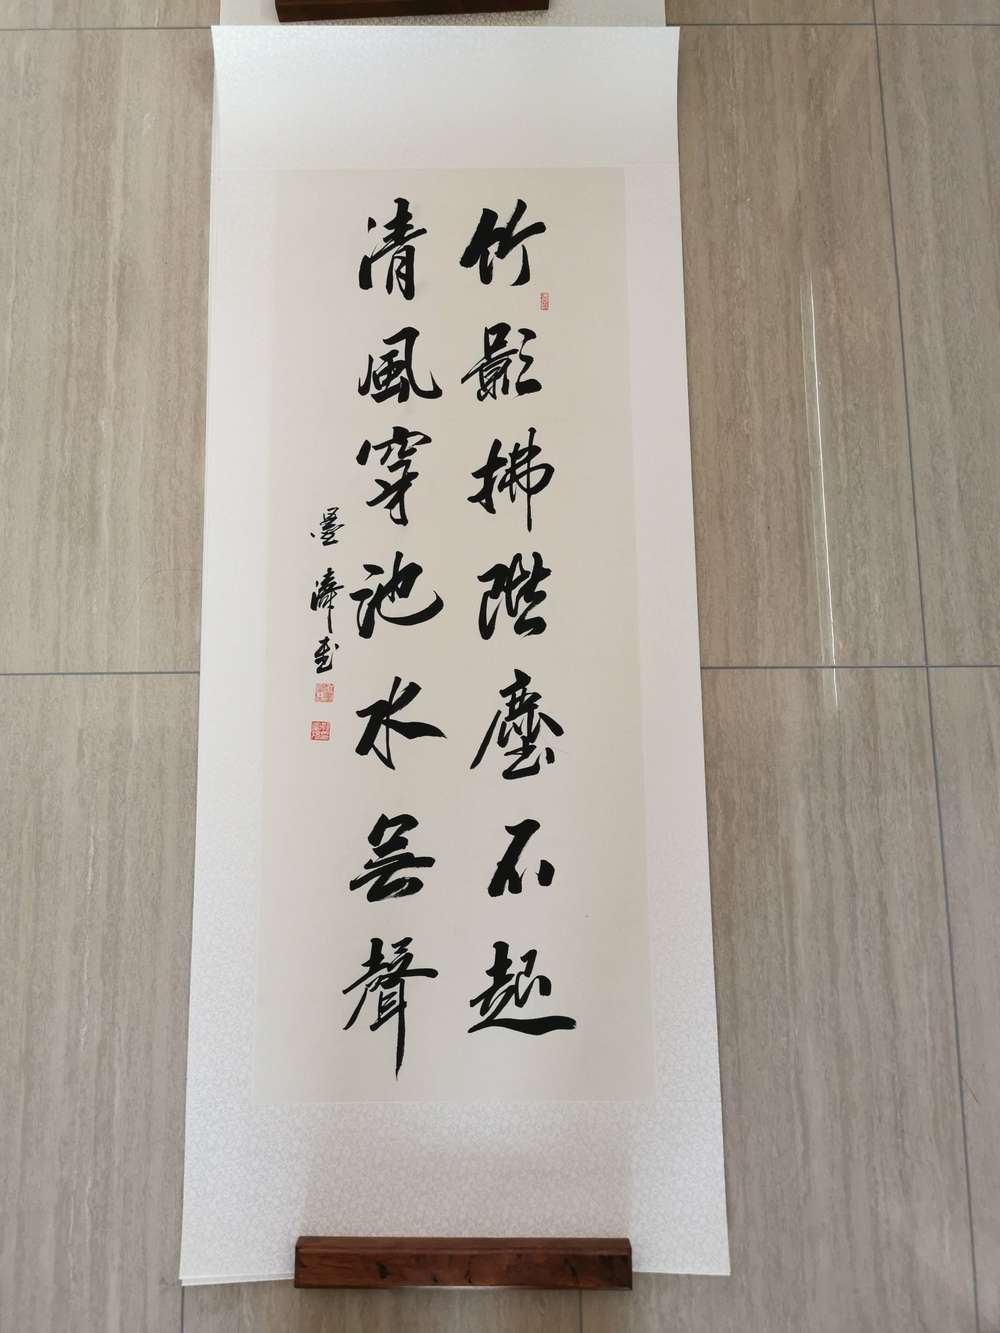 竹影拂階塵不起
清風穿池水無聲
墨濤書